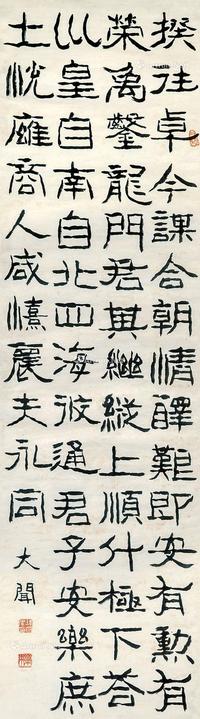 揆往卓今謀合朝情醳難即安有勳有
榮禹鑿龍門君其繼縱上順斗極下荅
巛皇自南自北四海攸通君子安樂庶
士悅雍商人咸憘農夫永同
大聞